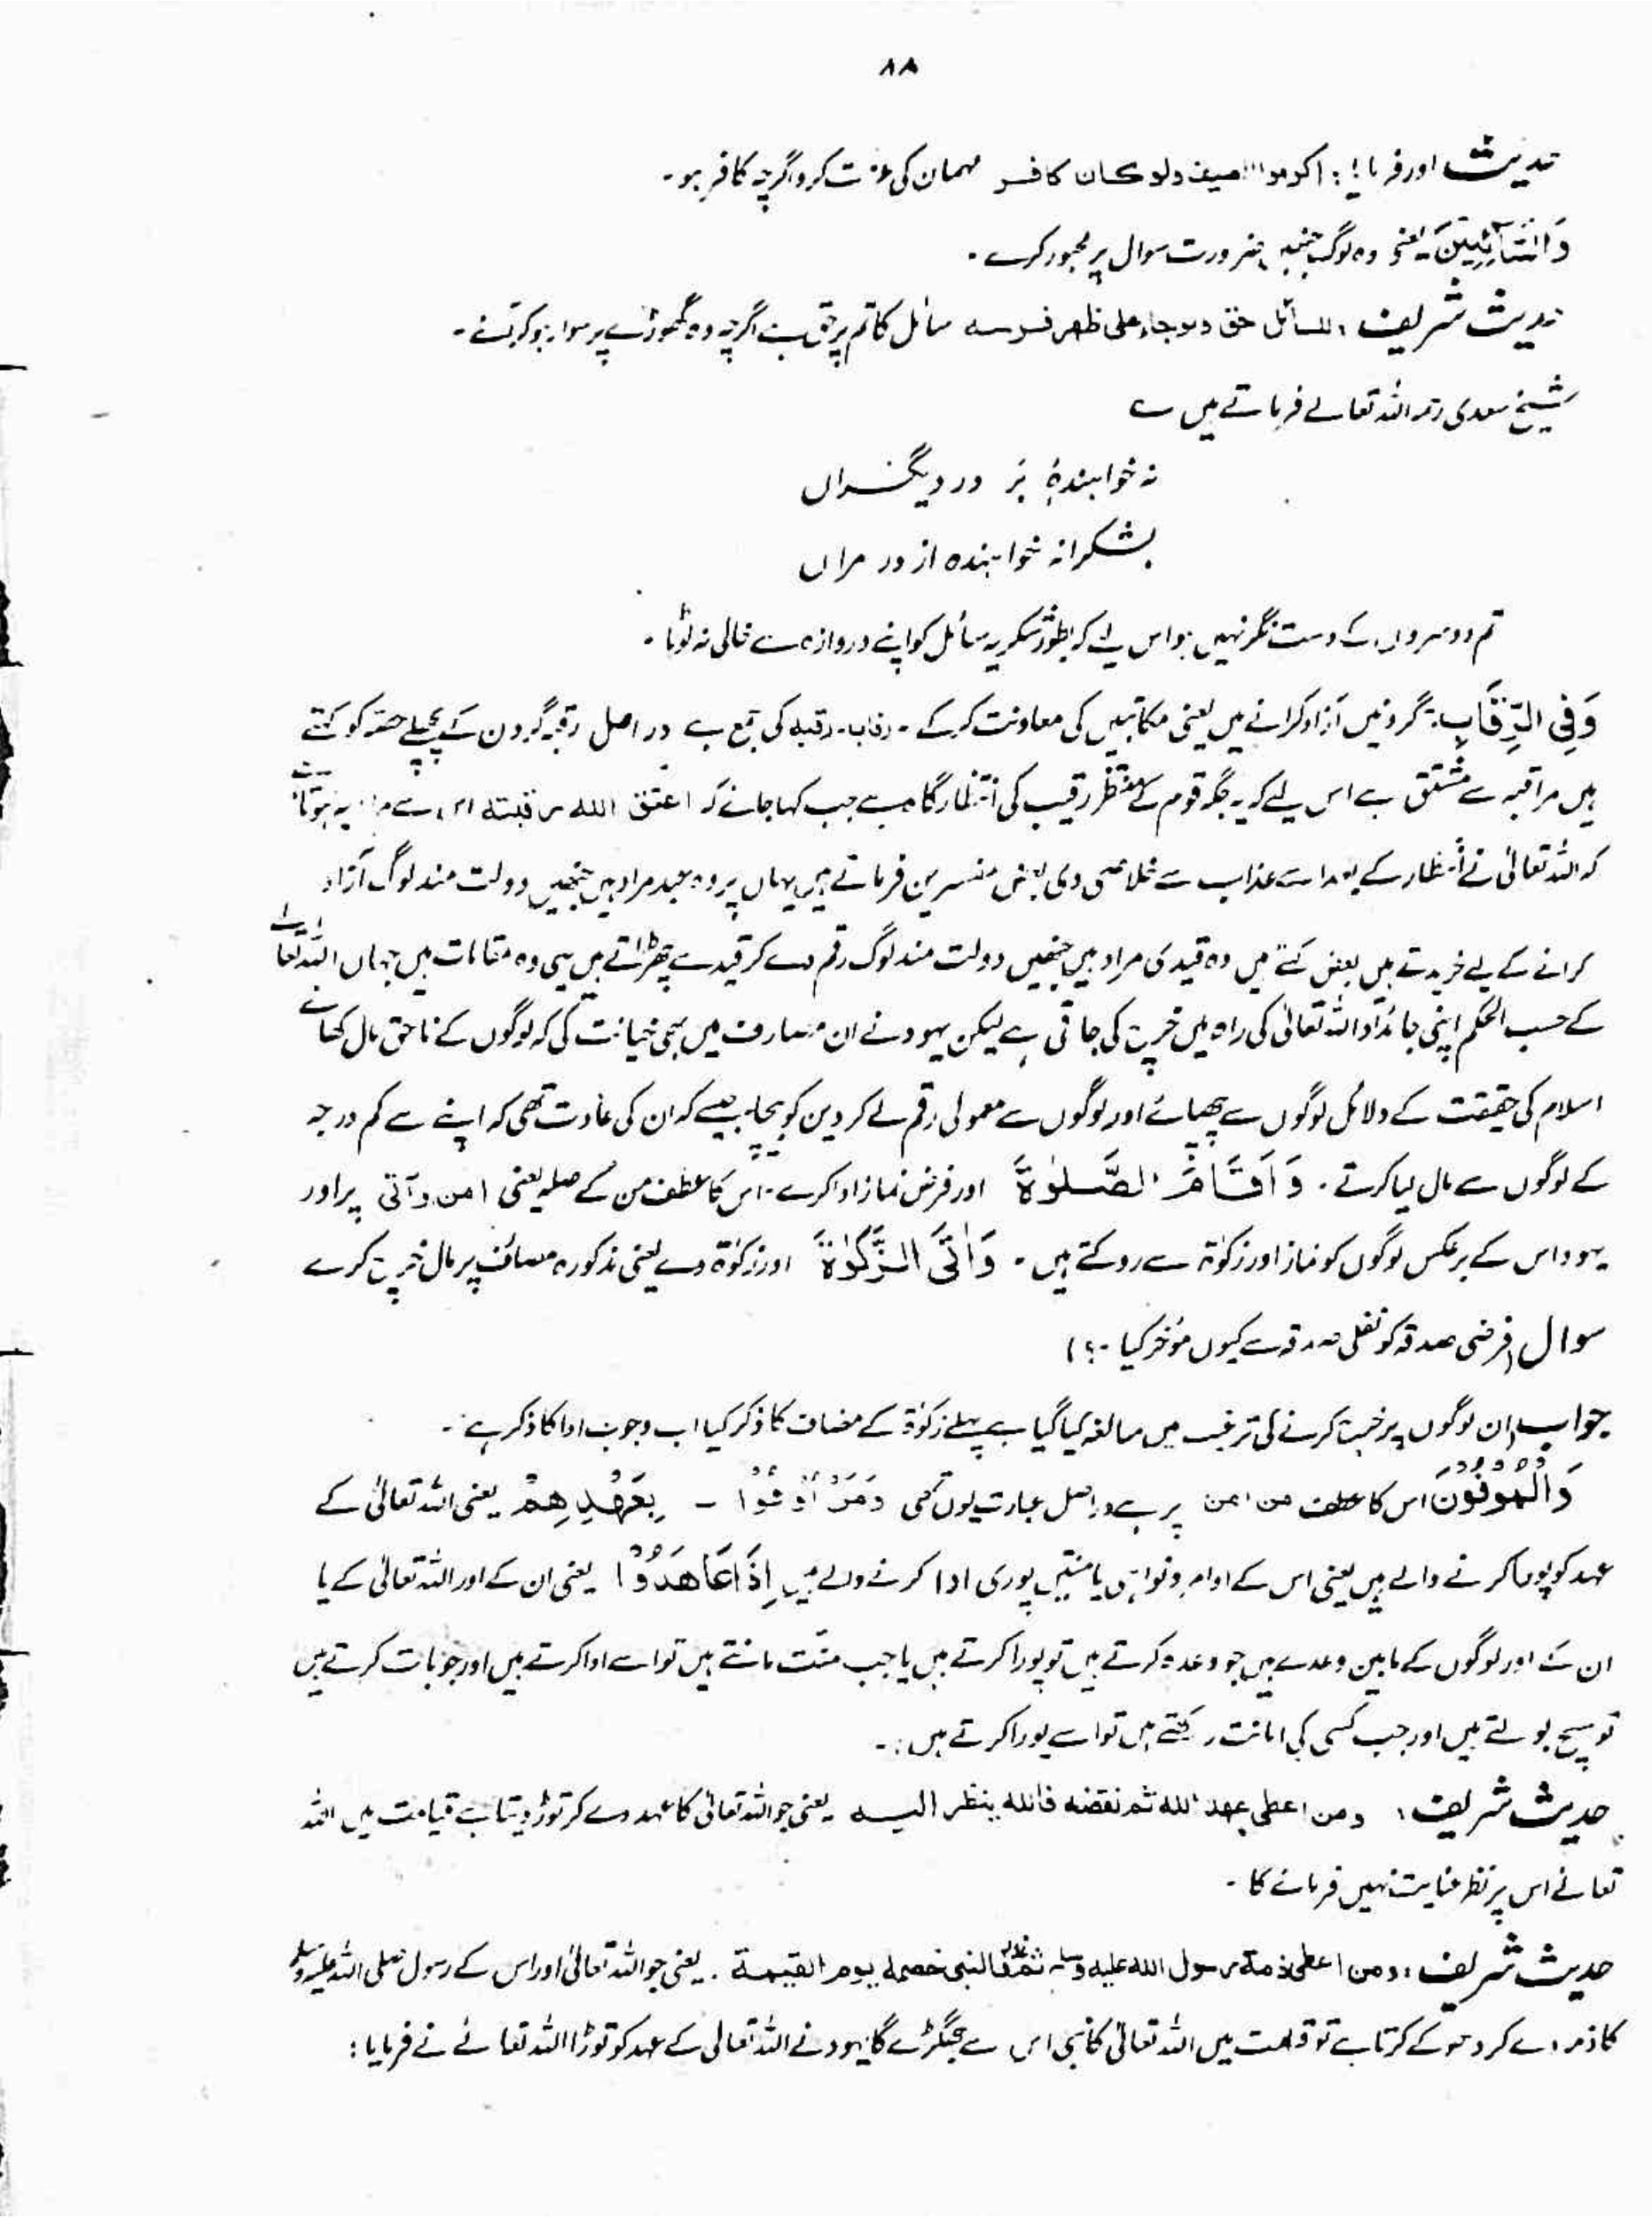 ۸۸
حدیث اور فرمایا: اکرموا الضیف ولو کان کافر مہمان کی عزت کرو اگرچہ کافر ہو۔
وَالسَّآئِلِیْنَ یعنی وہ لوگ جنہیں ضرورت سوال پر مجبور کرے۔
حدیث شریف: للسائل حق ولو جاء علی ظهر فرسه سائل کا تم پر حق ہے اگرچہ وہ گھوڑے پر سوار ہو کر آئے۔
شیخ سعدی رحمہ اللہ تعالےٰ فرماتے ہیں ے
نہ خواہندۂ بر در دیگراں
بشکرانہ خواہندہ از در مراں
تم دوسروں کے دست نگر نہیں ہو اس لیے کہ بطور شکریہ سائل کو اپنے دروازہ سے خالی نہ لوٹا۔
وَفِی الرِّقَابِ گردنیں آزاد کرانے میں یعنی مکاتبین کی معاونت کر کے۔ رقاب۔ رقبہ کی جمع ہے در اصل رقبہ گردن کے پچھلے حصہ کو کہتے
ہیں مراقبہ سے مشتق ہے اس لیے کہ یہ جگہ قوم کے منتظر رقیب کی انتظار گاہ ہے جب کہا جائے کہ اعتق الله رقبته اس سے مراد یہ ہوتا ہے
کہ اللہ تعالیٰ نے انتظار کے بعد اسے عذاب سے خلاصی دی بعض مفسرین فرماتے ہیں یہاں پر وہ عبد مراد ہیں جنھیں دولت مند لوگ آزاد
کرانے کے لیے خریدتے ہیں بعض کہتے ہیں وہ قیدی مراد ہیں جنھیں دولت مند لوگ رقم دے کر قید سے چھڑاتے ہیں یہی وہ مقامات ہیں جہاں اللہ تعالیٰ
کے حسب الحکم اپنی جائداد اللہ تعالیٰ کی راہ میں خرچ کی جاتی ہے لیکن یہود نے ان مصارف میں بھی خیانت کی کہ لوگوں کے ناحق مال کھائے
اسلام کی حقیقت کے دلائل لوگوں سے چھپائے اور لوگوں سے معمولی رقم لے کر دین کو بیچا جیسے کہ ان کی عادت تھی کہ اپنے سے کم درجہ
کے لوگوں سے مال لیا کرتے۔ وَاَقَامَ الصَّلٰوۃَ اور فرض نماز ادا کرے۔ اس کا عطف من کے صلہ یعنی امن و آتی پر اور
یہود اس کے برعکس لوگوں کو نماز اور زکوٰۃ سے روکتے ہیں۔ وَاٰتَی الزَّکٰوۃَ اور زکوٰۃ دے یعنی مذکورہ مصارف پر مال خرچ کرے
سوال: فرضی صدقہ کو نفلی صدقہ سے کیوں مؤخر کیا۔؟
جواب: ان لوگوں پر خرچ کرنے کی ترغیب میں مبالغہ کیا گیا ہے پہلے زکوٰۃ کے مضاف کا ذکر کیا اب وجوب ادا کا ذکر ہے۔
وَالْمُوْفُوْنَ اس کا عطف من امن پر ہے در اصل عبارت یوں تھی وَمَنْ اَوْفُوْا ۔ بِعَهْدِهِمْ یعنی اللہ تعالیٰ کے
عہد کو پورا کرنے والے ہیں یعنی اس کے اوامر و نواہی یا منتیں پوری ادا کرنے والے ہیں اِذَا عَاهَدُوْا یعنی ان کے اور اللہ تعالیٰ کے یا
ان کے اور لوگوں کے مابین وعدے ہیں جو وعدہ کرتے ہیں تو پورا کرتے ہیں یا جب منّت مانتے ہیں تو اسے ادا کرتے ہیں اور جو بات کرتے ہیں
تو سچ بولتے ہیں اور جب کسی کی امانت رکھتے ہیں تو اسے پورا کرتے ہیں:۔
حدیث شریف: ومن اعطی عهد الله ثم نقضه فالله ینظر الیه یعنی جو اللہ تعالیٰ کا عہد دے کر توڑ دیتا ہے قیامت میں اللہ
تعالےٰ اس پر نظر عنایت نہیں فرمائے گا۔
حدیث شریف: ومن اعطی ذمة رسول الله علیه ثم فالنبی خصمه یوم القیمة۔ یعنی جو اللہ تعالیٰ اور اس کے رسول صلی اللہ علیہ وسلم
کا ذمہ دے کر دھوکے کرتا ہے تو قیامت میں اللہ تعالیٰ کا نبی اس سے جھگڑے گا یہود نے اللہ تعالیٰ کے عہد کو توڑا اللہ تعالےٰ نے فرمایا: